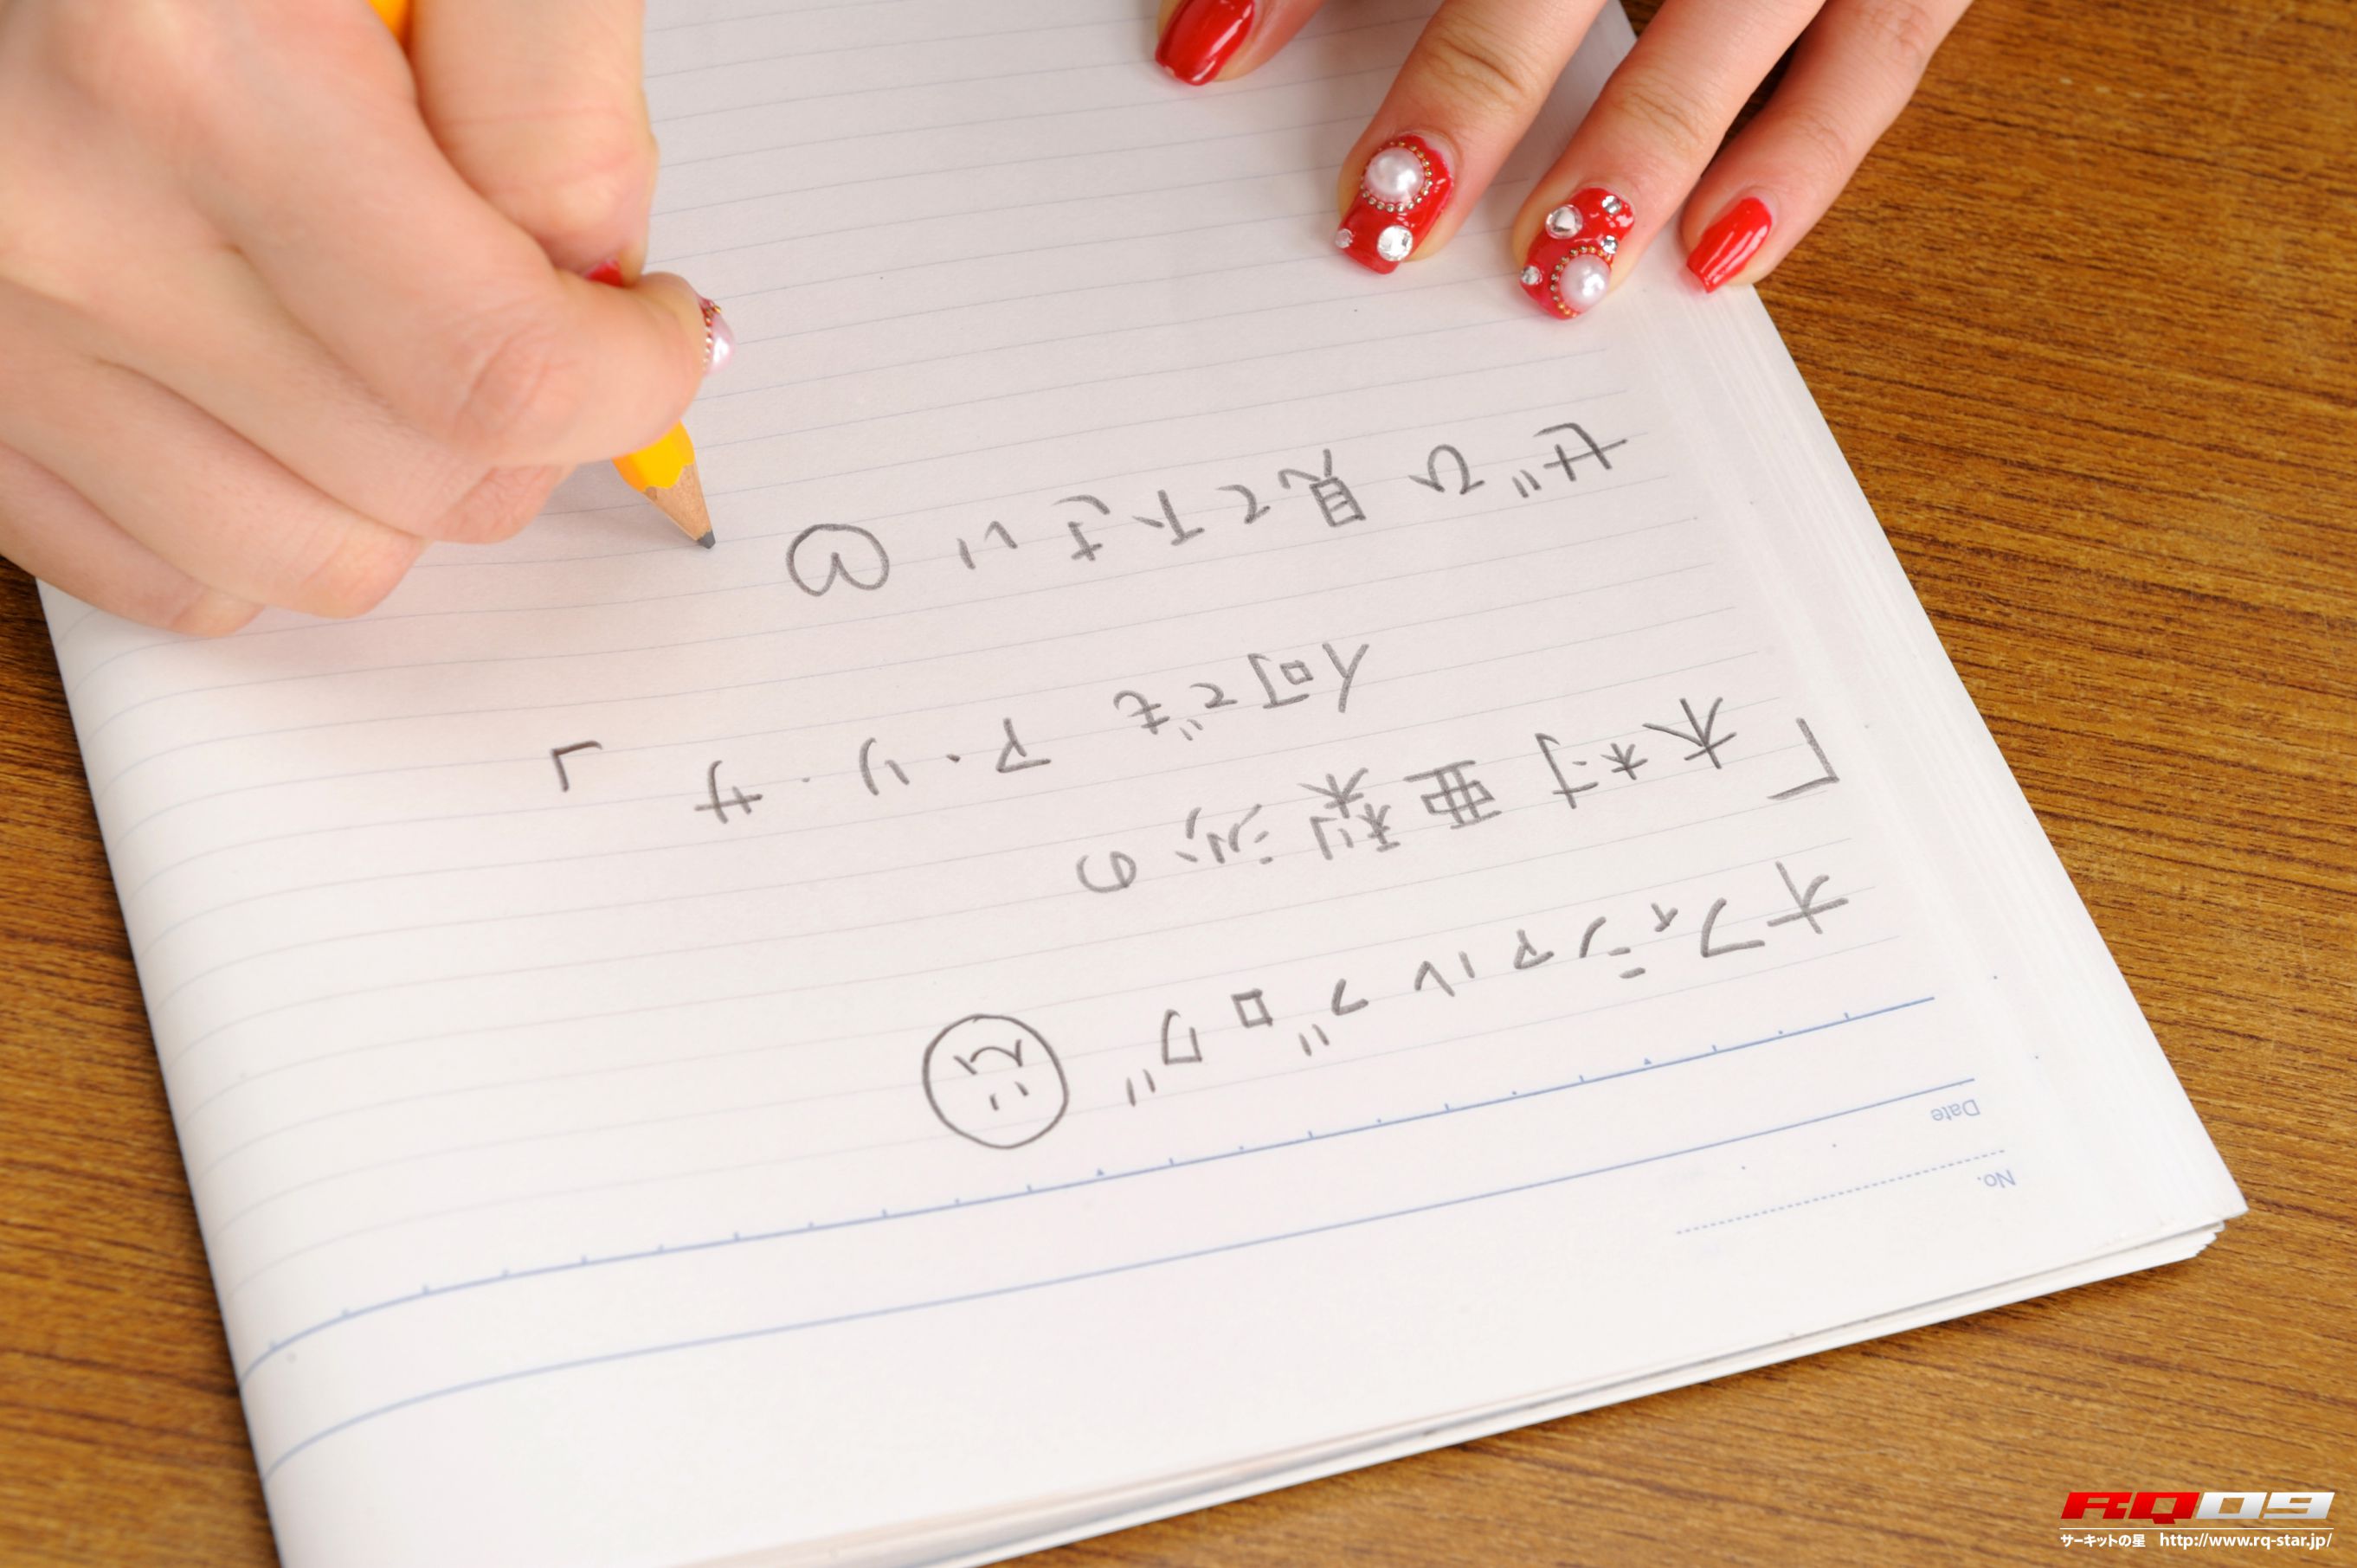 オフィシャルブログ
「木村亜梨沙の
何でも ア・リ・サ」
ぜひ見て下さい
No.
Date
RQ09
サーキットの星 http://www.rq-star.jp/